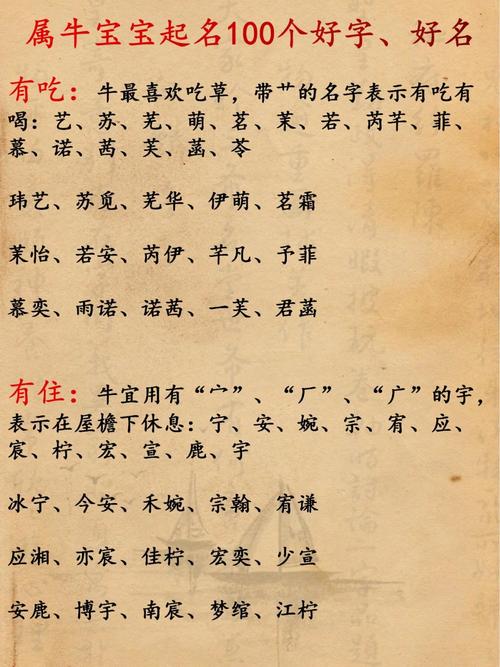 属牛宝宝起名100个好字、好名
有吃：牛最喜欢吃草，带艹的名字表示有吃有
喝：艺、苏、芜、萌、茗、茉、若、芮芊、菲、
慕、诺、茜、芙、菡、苓
玮艺、苏觅、芜华、伊萌、茗霜
茉怡、若安、芮伊、芊凡、予菲
慕奕、雨诺、诺茜、一芙、君菡
有住：牛宜用有“宀”、“厂”、“广”的字，
表示在屋檐下休息：宁、安、婉、宗、宥、应、
宸、柠、宏、宣、鹿、宇
冰宁、今安、禾婉、宗翰、宥谦
应湘、亦宸、佳柠、宏奕、少宣
安鹿、博宇、南宸、梦绾、江柠